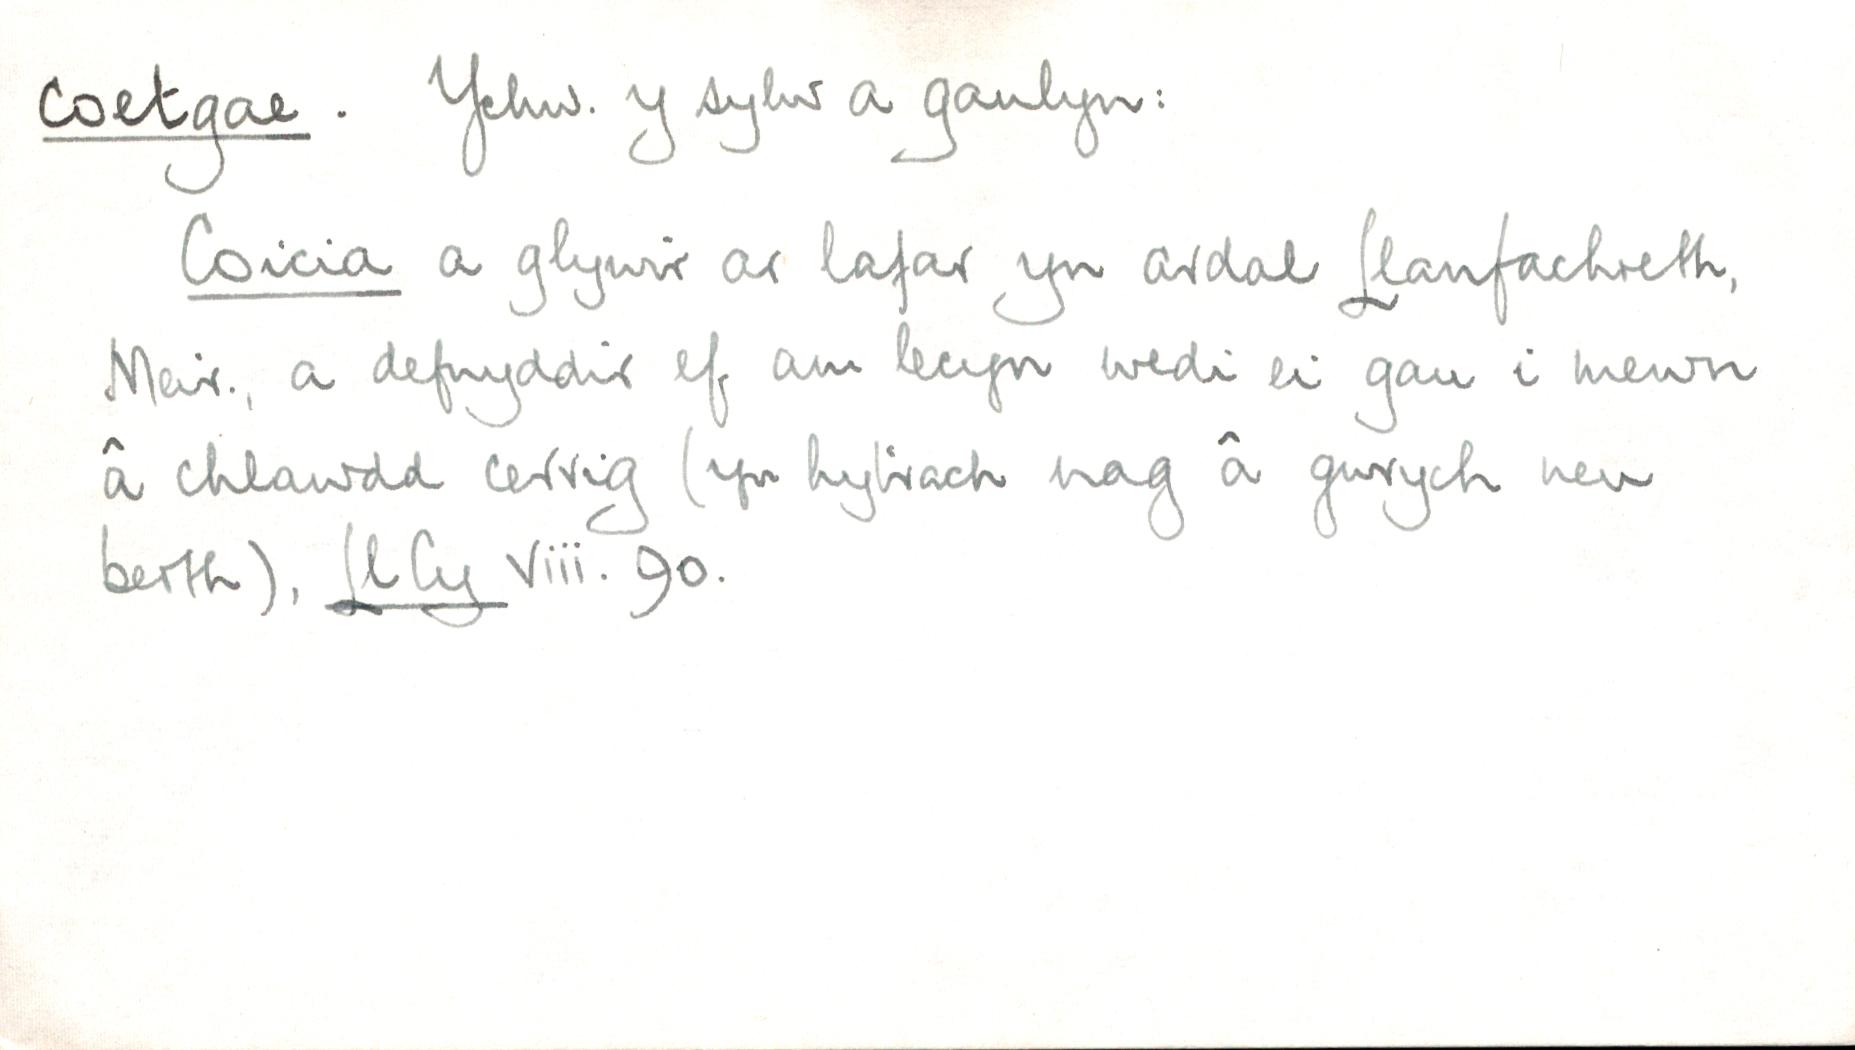 coetgae. Ychw. y sylw a ganlyn:
Coicia a glywir ar lafar yn ardal Llanfachreth,
Meir., a defnyddir ef am lecyn wedi ei gau i mewn
â chlawdd cerrig (yn hytrach nag â gwrych neu
berth), Ll Cy viii. 90.